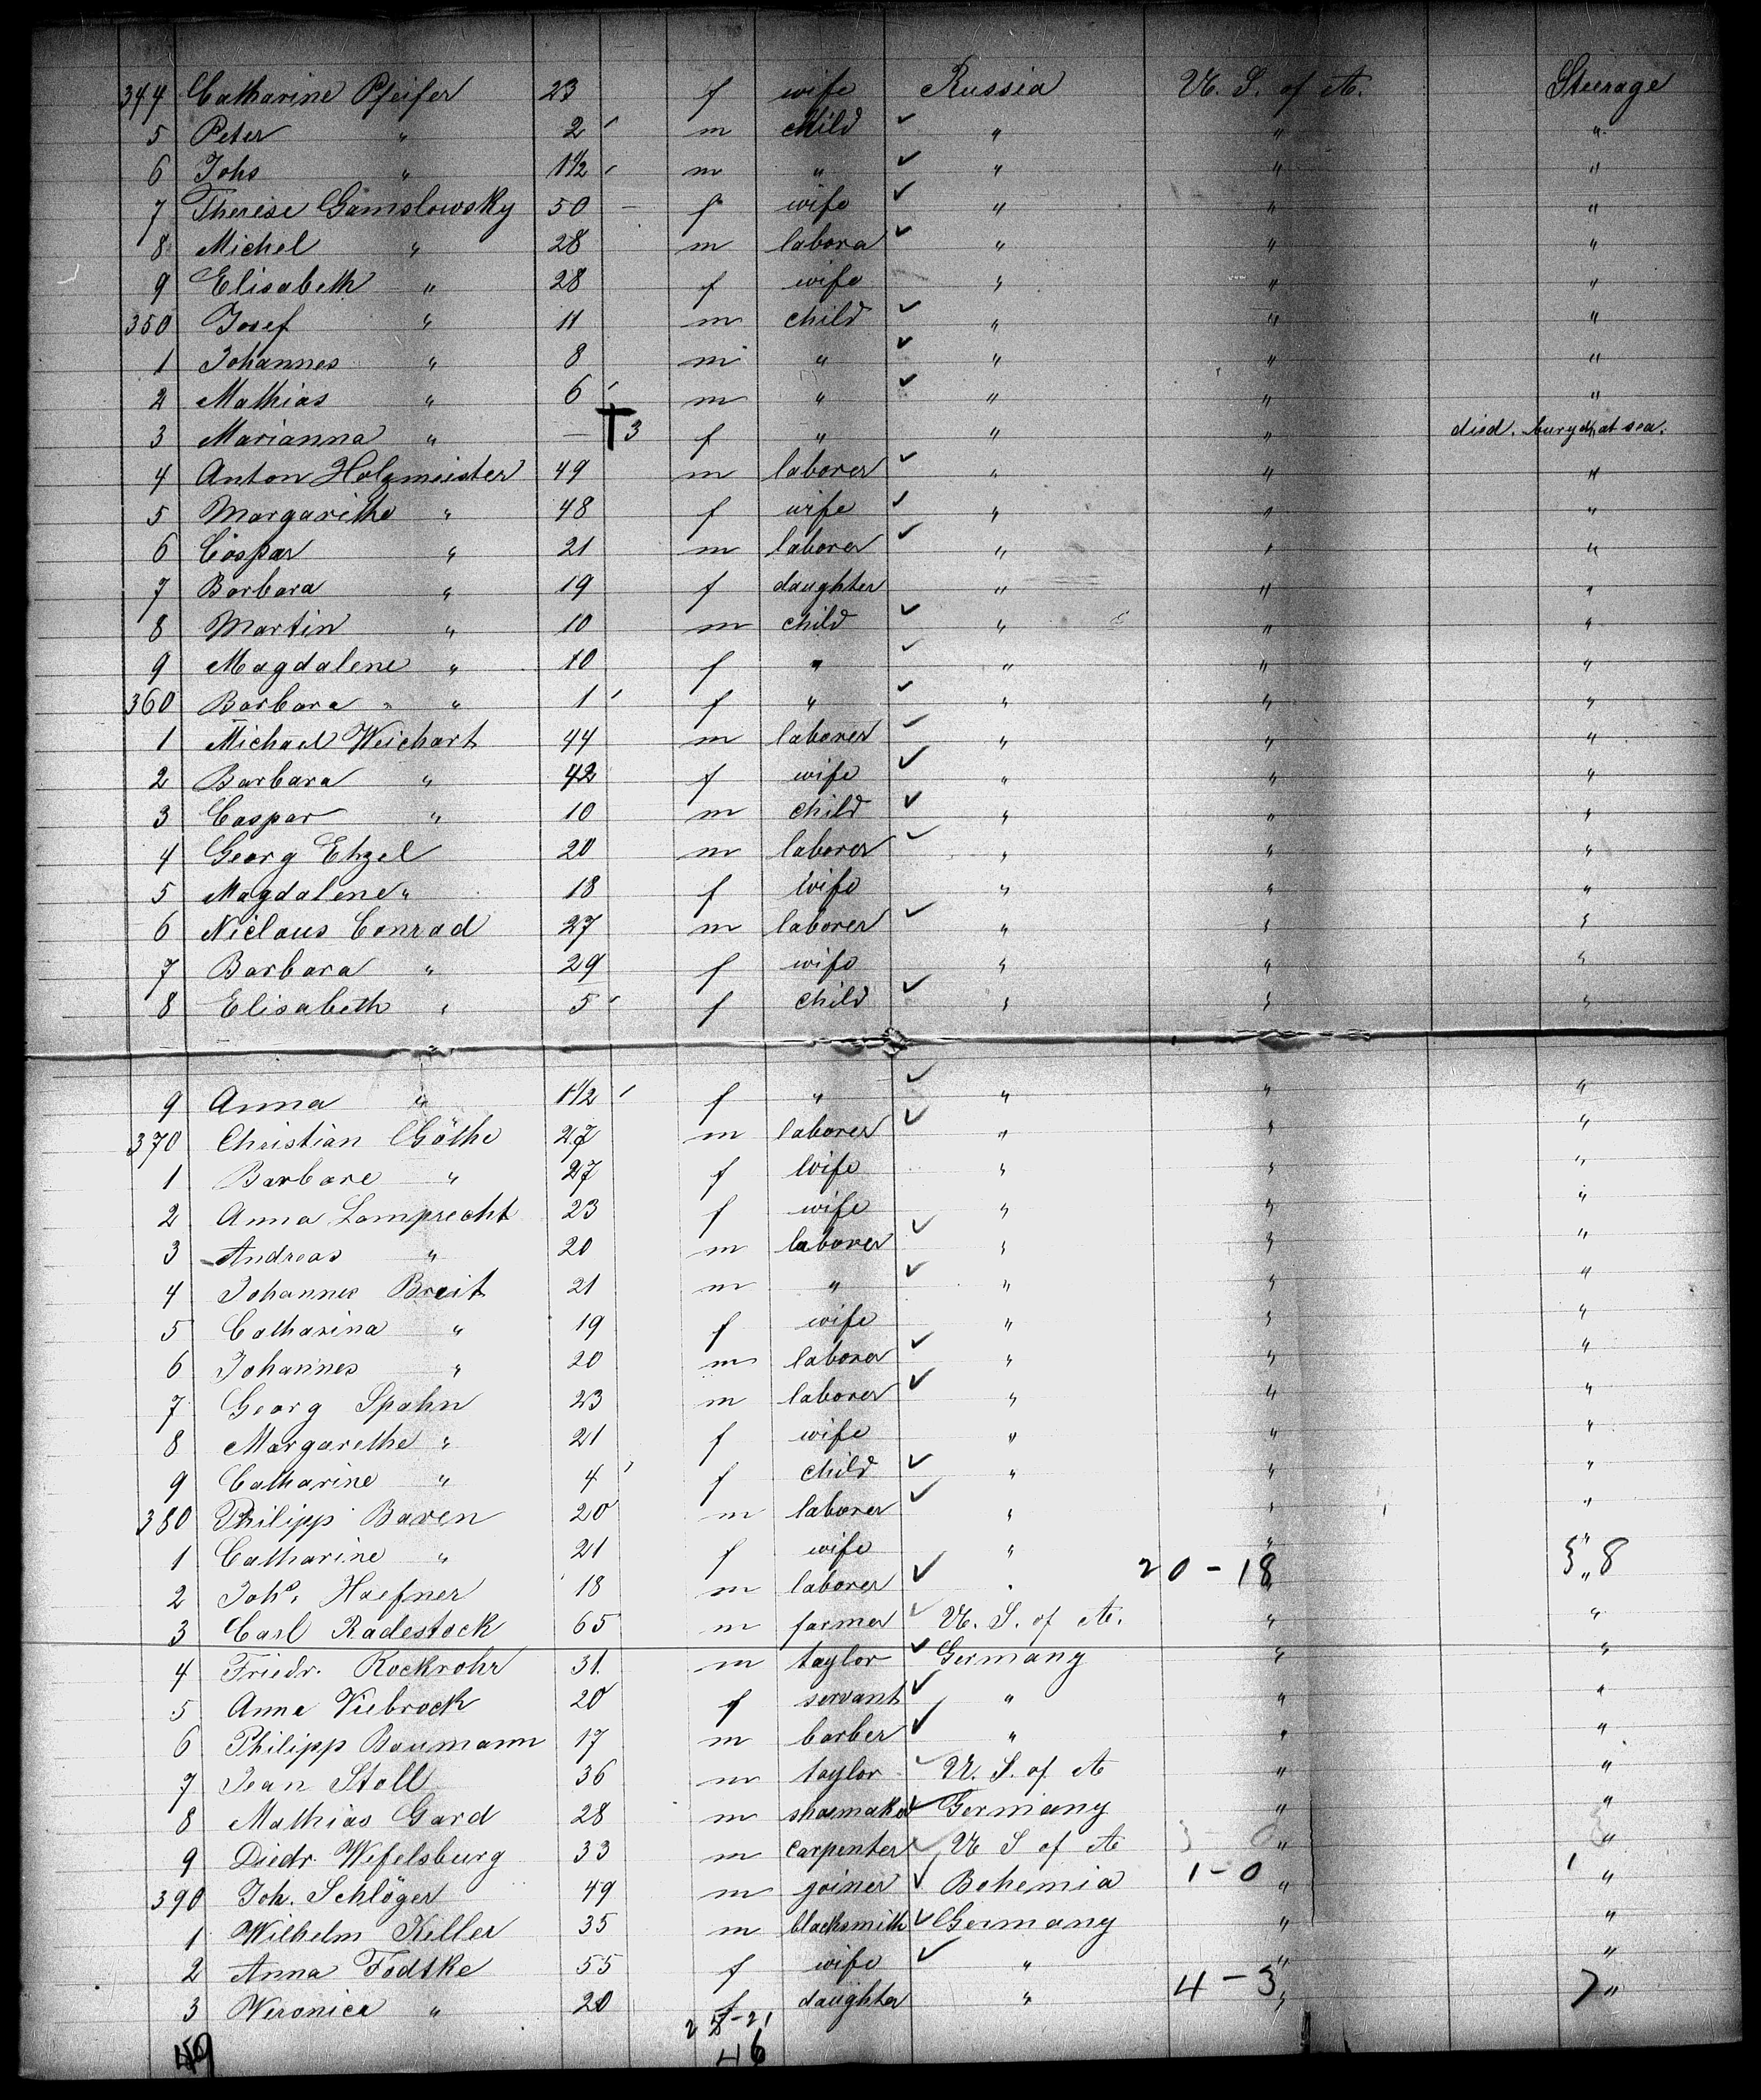 344 Catharine Pfeifer 23 f wife Russia U. S. of A. Steerage
5 Peter " 2 m child " " "
6 Johs " 1 1/2 m " " " "
7 Therese Gamslowsky 50 f wife " " "
8 Michel " 28 m labora " " "
9 Elisabeth " 28 f wife " " "
350 Josef " 11 m child " " "
1 Johannes " 8 m " " " "
2 Mathias " 6 m " " " "
3 Marianna " — † 3 f " " " died. buryd at sea.
4 Anton Holzmeister 49 m laborer " " "
5 Margarithe " 48 f wife " " "
6 Caspar " 21 m laborer " " "
7 Barbara " 19 f daughter " " "
8 Martin " 10 m child " " "
9 Magdalene " 10 f " " " "
360 Barbara " 1 f " " " "
1 Michael Weichart 44 m laborer " " "
2 Barbara " 42 f wife " " "
3 Caspar " 10 m child " " "
4 Georg Etzel 20 m laborer " " "
5 Magdalene " 18 f wife " " "
6 Niclaus Conrad 27 m laborer " " "
7 Barbara " 29 f wife " " "
8 Elisabeth " 5 f child " " "
9 Anna " 1 1/2 f " " " "
370 Christian Göthe 27 m laborer " " "
1 Barbare " 27 f wife " " "
2 Anna Lamprecht 23 f wife " " "
3 Andreas " 20 m laborer " " "
4 Johannes Breit 21 m " " " "
5 Catharina " 19 f wife " " "
6 Johannes " 20 m laborer " " "
7 Georg Spahn 23 m laborer " " "
8 Margarethe " 21 f wife " " "
9 Catharine " 4 f child " " "
380 Philipp Baven 20 m laborer " " "
1 Catharine " 21 f wife " " "
2 Johs. Haefner 18 m laborer " 20 - 18 " " 8
3 Carl Radestock 65 m farmer U. S. of A. " "
4 Friedr. Rockrohr 31 m taylor Germany " "
5 Anna Viebrock 20 f servant " " "
6 Philipp Baumann 17 m barber " " "
7 Jean Stoll 36 m taylor U. S. of A " "
8 Mathias Gard 28 m shoemaker Germany " "
9 Diedr. Wefelsburg 33 m carpenter U S of A " "
390 Joh. Schlöger 49 m joiner Bohemia 1 - 0 " 1 "
1 Wilhelm Keller 35 m blacksmith Germany " "
2 Anna Fodtke 55 f wife " " "
3 Veronica " 20 f daughter " 4 - 3 " 7 "
49 46